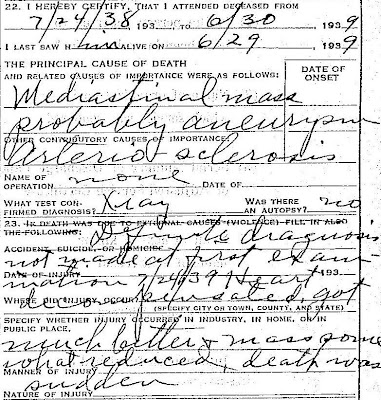 22. I HEREBY CERTIFY, THAT I ATTENDED DECEASED FROM
7/24/38, 193 , TO 6/30 , 1939
I LAST SAW Him ALIVE ON 6/29 , 1939
THE PRINCIPAL CAUSE OF DEATH
AND RELATED CAUSES OF IMPORTANCE WERE AS FOLLOWS:
DATE OF
ONSET
Mediastinal mass
probably aneurysm
OTHER CONTRIBUTORY CAUSES OF IMPORTANCE:
Arterio sclerosis
NAME OF
OPERATION none DATE OF
WHAT TEST CON-
FIRMED DIAGNOSIS? Xray WAS THERE
AN AUTOPSY? no
23. IF DEATH WAS DUE TO EXTERNAL CAUSES (VIOLENCE) FILL IN ALSO
THE FOLLOWING:
diagnosis
ACCIDENT, SUICIDE, OR HOMICIDE
not made at first exam-
DATE OF INJURY 193
ination 7/24/39 Heart
WHERE DID INJURY OCCUR?
got
(SPECIFY CITY OR TOWN, COUNTY, AND STATE)
SPECIFY WHETHER INJURY OCCURRED IN INDUSTRY, IN HOME, OR IN
PUBLIC PLACE,
much better & mass some
what reduced, death was
MANNER OF INJURY
sudden
NATURE OF INJURY